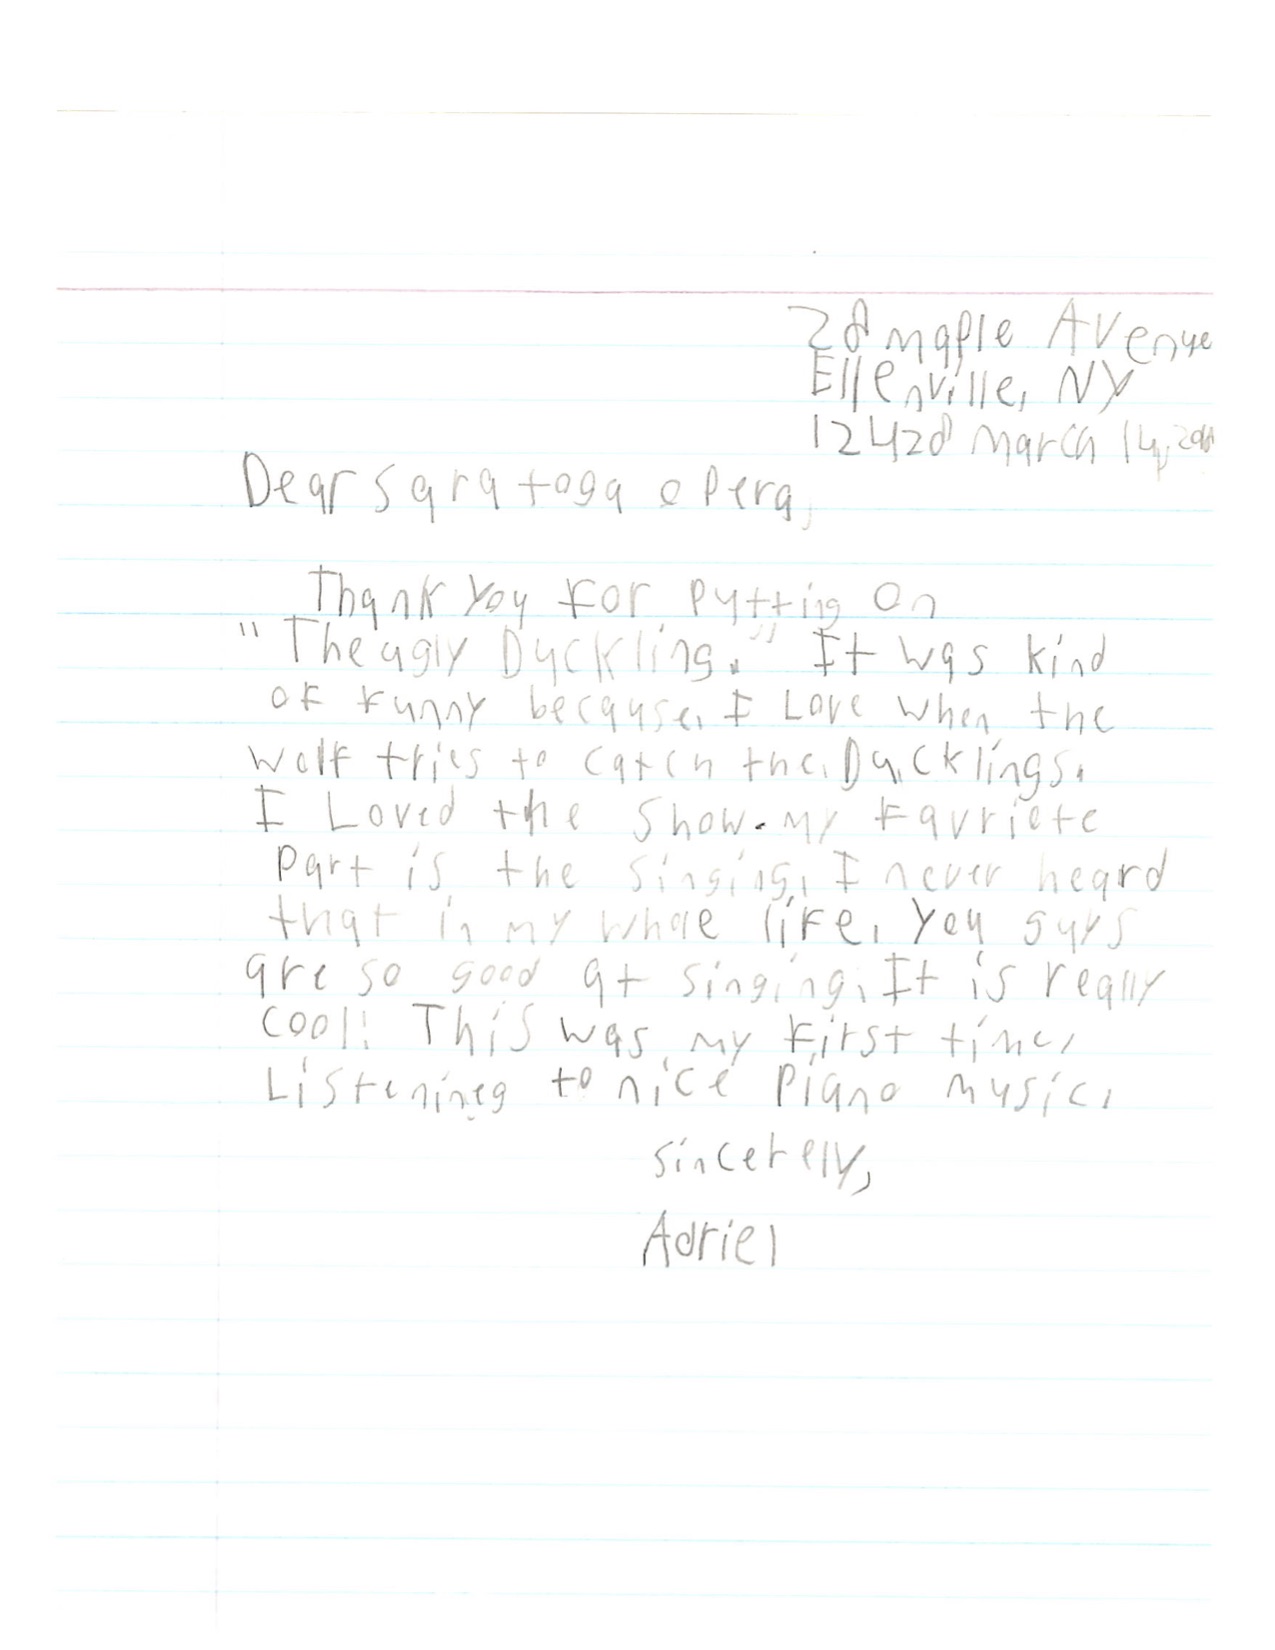 28 maple Avenue
Ellenville, NY
12428 March 14,
Dear Saratoga opera,
Thank you for putting on
"The ugly Duckling." It was kind
of funny because. I Love when the
wolf tries to catch the. Ducklings.
I Loved the show. my favriete
part is the singing. I never heard
that in my whole life. you guys
are so good at singing. It is really
cool! This was my first time
Listening to nice piano music.
sincerely,
Adriel